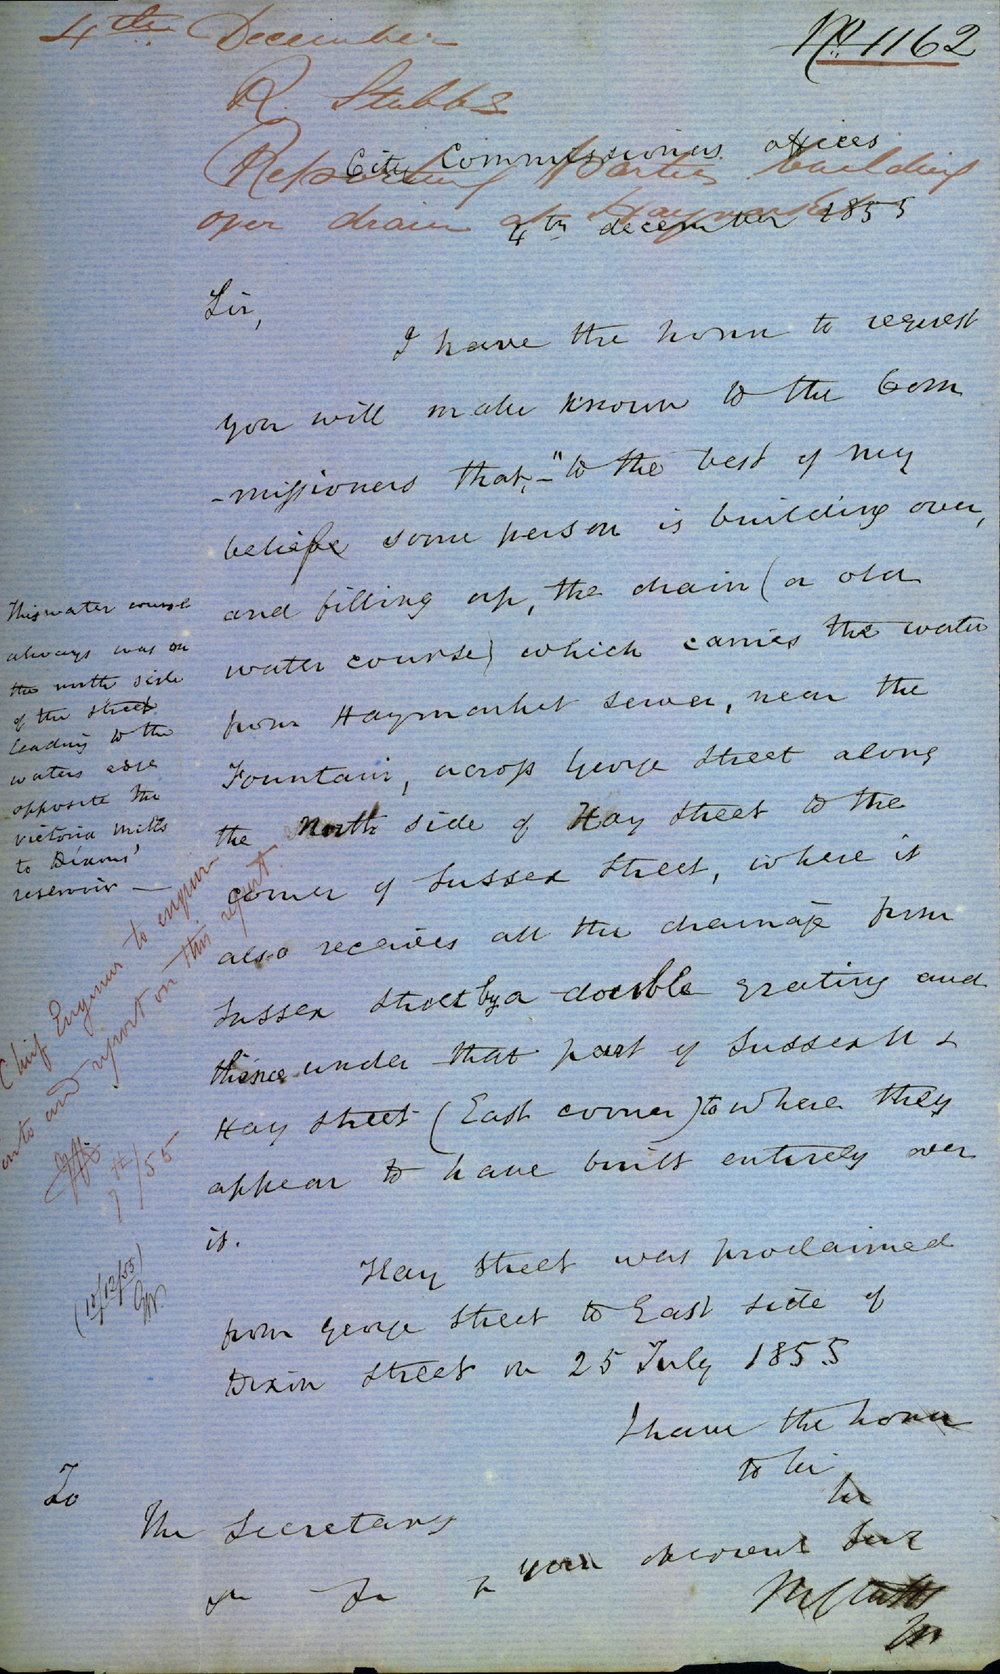 4th December
No. 1162
R. Stubbs
Reporting Parties building
over drain at Haymarket
City Commissioners offices
4th december 1855
Sir,
I have the honor to request
you will make known to the Com
-missioners that, - "to the best of my
beliefe some person is building over,
and filling up, the drain (a old
water course) which carries the water
from Haymarket sewer, near the
Fountain, across George Street along
the North side of Hay Street to the
corner of Sussex Street, where it
also receives all the drainage from
Sussex Street by a double grating and
thence under that part of Sussex St &
Hay Street (East corner) to where they
appear to have built entirely over
it.
Hay Street was proclaimed
from George Street to East side of
Dixon Street on 25 July 1855
I have the honor
to be
Your obedient Ser
To
The Secretary
This water course
always was on
the north side
of the street
leading to the
waters edge
opposite the
Victoria Mills
to Dixons'
reservoir —
Chief Engineer to enquire
into and report on this report.
7th/55
(10/12/55)